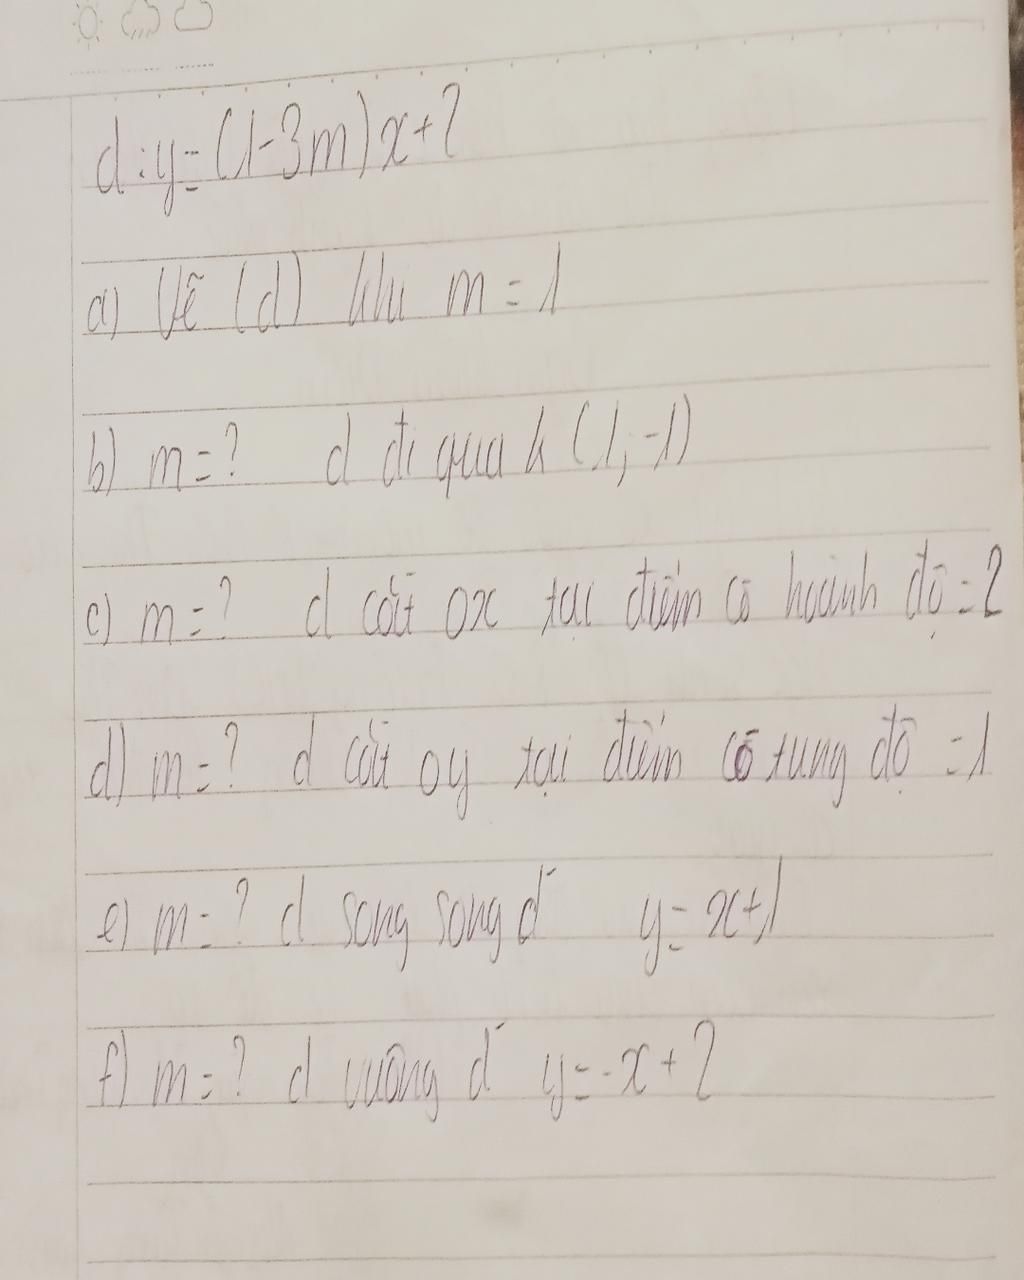 d : y = (1-3m)x+2
a) Vẽ (d) khi m = 1
b) m = ? d đi qua A (1; -1)
c) m = ? d cắt ox tại điểm có hoành độ = 2
d) m = ? d cắt oy tại điểm có tung độ = 1
e) m = ? d song song d' y = x+1
f) m = ? d vuông d' y = -x + 2